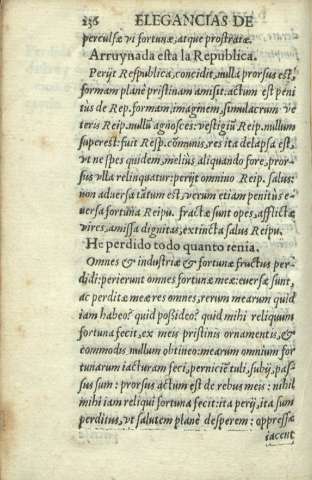 236 ELEGANCIAS DE
perculſæ vi fortunæ, atque proſtratæ.
Arruynada eſta la Republica.
Perijt Reſpublica, concidit, nulla prorſus eſt,
formam planè priſtinam amiſit: actum eſt peni
tùs de Rep. formam, imaginem, ſimulacrum ve
teris Reip. nullũ agnoſces: veſtigiũ Reip. nullum
ſupereſt: fuit Reſp. cõmunis, res ita delapſa eſt,
vt ne ſpes quidem, meliùs aliquando fore, pror-
ſus vlla relinquatur: perijt omnino Reip. ſalus:
non aduerſa tãtum eſt, verum etiam penitùs e-
uerſa fortũna Reipu. fractæ ſunt opes, afflictæ
vires, amiſſa dignitas, extincta ſalus Reipu.
He perdido todo quanto tenia.
Omnes & induſtriæ & fortunæ fructus per-
didi: perierunt omnes fortunæ meæ: euerſæ ſunt,
ac perditæ meæ res omnes, rerum mearum quid
iam habeo? quid poſideo? quid mihi reliquum
fortuna fecit, ex meis priſtinis ornamentis, &
commodis nullum obtineo: mearum omnium for
tunarum iacturam feci, perniciẽ tuli, ſubij, paſ-
ſus ſum: prorſus actum eſt de rebus meis: nihil
mihi iam reliqui fortuna fecit: ita perij, ita ſum
perditus, vt ſalutem planè deſperem: oppreſſæ
iacent